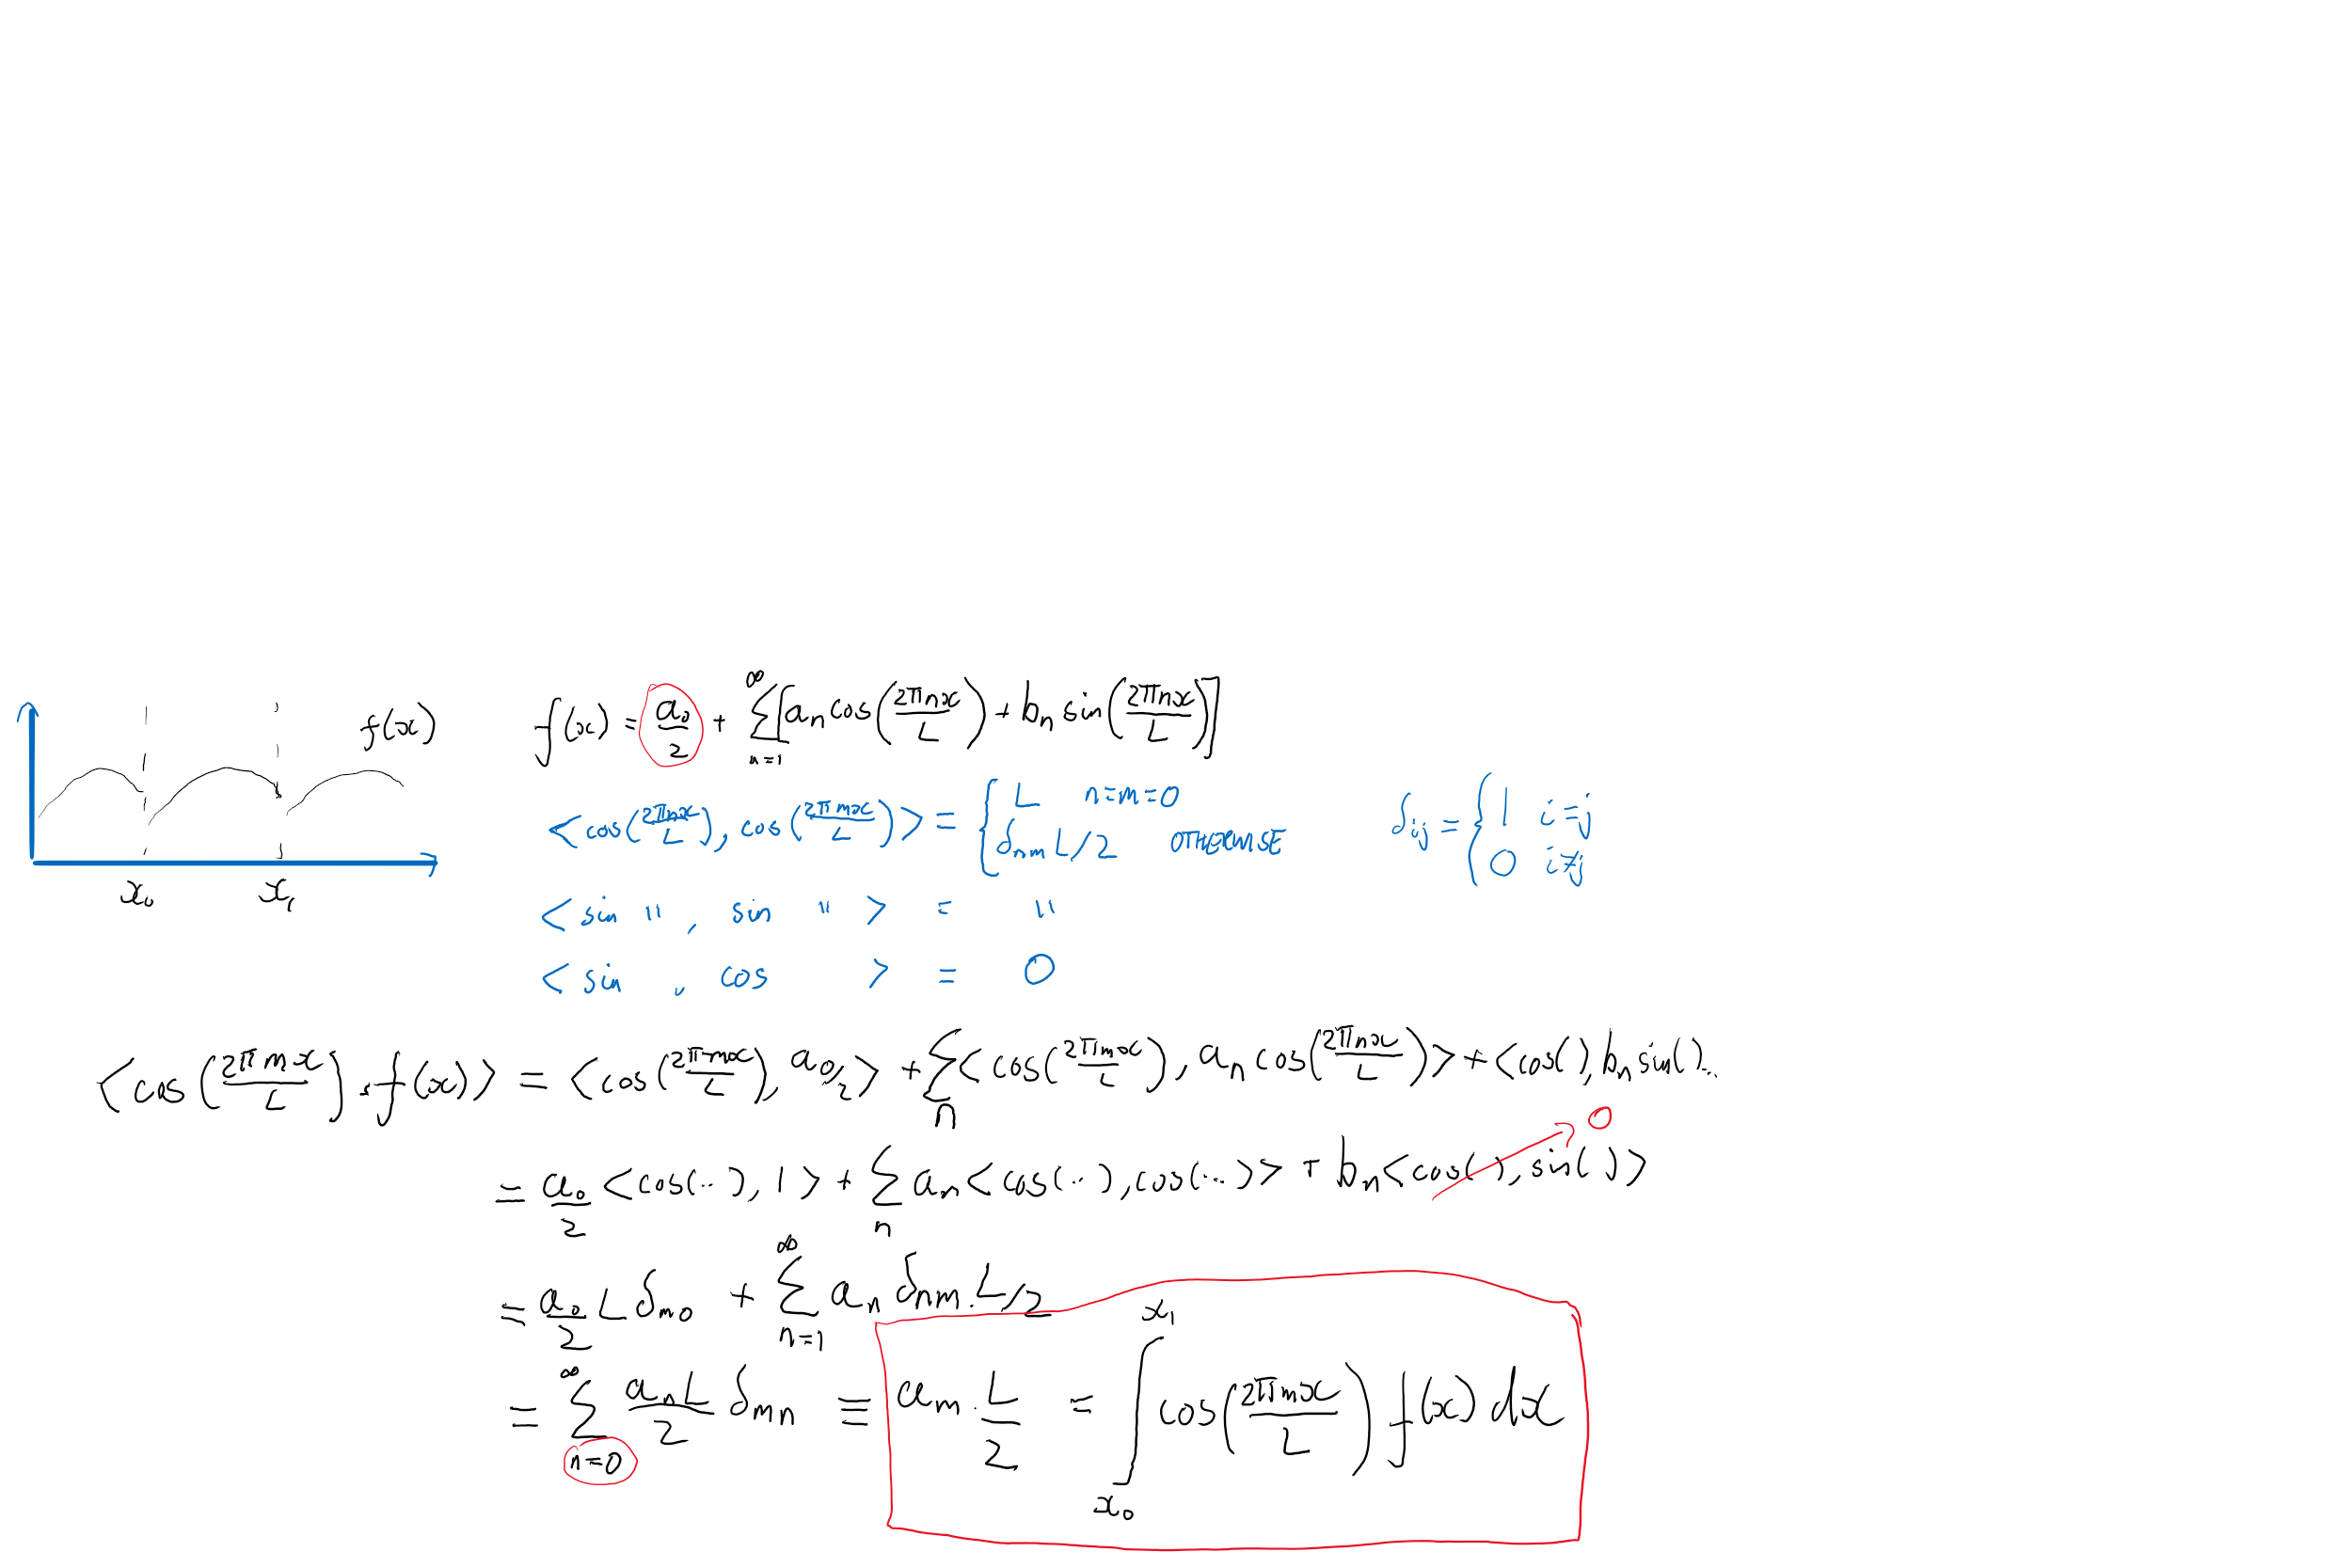 f(x)
x₀ x₁
f(x) = a₀/2 + ∑_{n=1}^{∞} [aₙ cos(2πnx/L) + bₙ sin(2πnx/L)]
<cos(2πnx/L), cos(2πmx/L)> = { L n=m=0
δₙₘ L/2 OTHERWISE
δᵢⱼ = { 1 i=j
0 i≠j
<sin " , sin " > = "
<sin , cos > = 0
<cos(2πmx/L), f(x)> = <cos(2πmx/L), a₀/2> + ∑ₙ <cos(2πmx/L), aₙ cos(2πnx/L)> + <cos( ), bₙ sin( )...
= a₀/2 <cos(..), 1> + ∑ₙ aₙ <cos(..), cos(...)> + bₙ <cos( ), sin( )> 0
= a₀/2 L δₘ₀ + ∑_{n=1}^{∞} aₙ δₙₘ . L/2
= ∑_{n=0}^{∞} aₙL/2 δₘₙ ≡ aₘ . L/2 = ∫_{x₀}^{x₁} cos(2πmx/L) f(x) dx